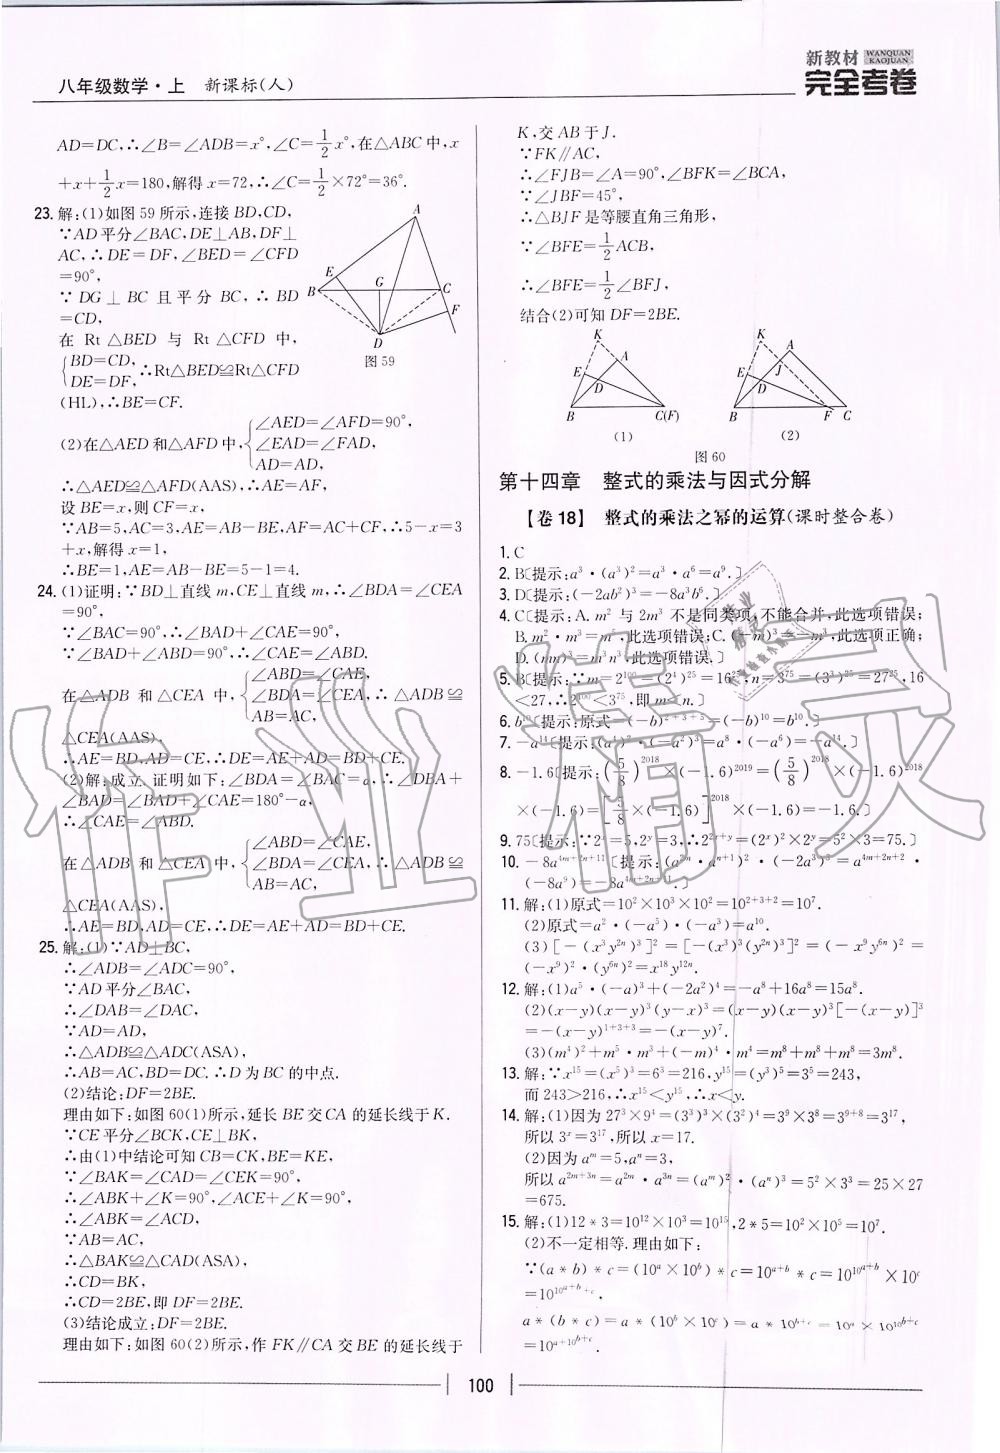 八年级数学·上 新课标(人)
新教材 WANQUAN KAOJUAN
完全考卷
AD=DC,∴∠B=∠ADB=x°,∠C=1/2x°,在△ABC中,x
+x+1/2x=180,解得x=72,∴∠C=1/2×72°=36°.
23.解:(1)如图59所示,连接BD,CD,
∵AD平分∠BAC,DE⊥AB,DF⊥
AC,∴DE=DF,∠BED=∠CFD
=90°,
∵DG⊥BC且平分BC,∴BD
=CD,
在Rt△BED与Rt△CFD中,
{BD=CD,
DE=DF,∴Rt△BED≌Rt△CFD
(HL),∴BE=CF.
A
E
G
B
C
F
D
图59
(2)在△AED和△AFD中,{∠AED=∠AFD=90°,
∠EAD=∠FAD,
AD=AD,
∴△AED≌△AFD(AAS),∴AE=AF,
设BE=x,则CF=x,
∵AB=5,AC=3,AE=AB-BE,AF=AC+CF,∴5-x=3
+x,解得x=1,
∴BE=1,AE=AB-BE=5-1=4.
24.(1)证明:∵BD⊥直线m,CE⊥直线m,∴∠BDA=∠CEA
=90°,
∵∠BAC=90°,∴∠BAD+∠CAE=90°,
∵∠BAD+∠ABD=90°,∴∠CAE=∠ABD.
在△ADB和△CEA中,{∠ABD=∠CAE,
∠BDA=∠CEA,∴△ADB≌
AB=AC,
△CEA(AAS),
∴AE=BD,AD=CE,∴DE=AE+AD=BD+CE.
(2)解:成立.证明如下:∠BDA=∠BAC=α,∴∠DBA+
∠BAD=∠BAD+∠CAE=180°-α,
∴∠CAE=∠ABD.
在△ADB和△CEA中,{∠ABD=∠CAE,
∠BDA=∠CEA,∴△ADB≌
AB=AC,
△CEA(AAS),
∴AE=BD,AD=CE,∴DE=AE+AD=BD+CE.
25.解:(1)∵AD⊥BC,
∴∠ADB=∠ADC=90°,
∵AD平分∠BAC,
∴∠DAB=∠DAC,
∵AD=AD,
∴△ADB≌△ADC(ASA),
∴AB=AC,BD=DC.∴D为BC的中点.
(2)结论:DF=2BE.
理由如下:如图60(1)所示,延长BE交CA的延长线于K.
∵CE平分∠BCK,CE⊥BK,
∴由(1)中结论可知CB=CK,BE=KE,
∵∠BAK=∠CAD=∠CEK=90°,
∴∠ABK+∠K=90°,∠ACE+∠K=90°,
∴∠ABK=∠ACD,
∵AB=AC,
∴△BAK≌△CAD(ASA),
∴CD=BK,
∴CD=2BE,即DF=2BE.
(3)结论成立:DF=2BE.
理由如下:如图60(2)所示,作FK∥CA交BE的延长线于
K,交AB于J.
∵FK∥AC,
∴∠FJB=∠A=90°,∠BFK=∠BCA,
∵∠JBF=45°,
∴△BJF是等腰直角三角形,
∵∠BFE=1/2ACB,
∴∠BFE=1/2∠BFJ,
结合(2)可知DF=2BE.
K
A
E
D
B
C(F)
(1)
K
A
E
J
D
B
F C
(2)
图60
第十四章 整式的乘法与因式分解
【卷18】 整式的乘法之幂的运算(课时整合卷)
1.C
2.B〔提示:a³·(a³)²=a³·a⁶=a⁹.〕
3.D〔提示:(-2ab²)³=-8a³b⁶.〕
4.C〔提示:A.m²与2m³不是同类项,不能合并,此选项错误;
B.m²·m³=m⁵,此选项错误;C.(-m)³=-m³,此选项正确;
D.(mn)³=m³n³,此选项错误.〕
5.B〔提示:∵m=2¹⁰⁰=(2⁴)²⁵=16²⁵,n=3⁷⁵=(3³)²⁵=27²⁵,16
<27,∴2¹⁰⁰<3⁷⁵,即m<n.〕
6.b¹⁰〔提示:原式=(-b)²⁺³⁺⁵=(-b)¹⁰=b¹⁰.〕
7.-a¹⁴〔提示:(a⁴)²·(-a²)³=a⁸·(-a⁶)=-a¹⁴.〕
8.-1.6〔提示:(5/8)²⁰¹⁸×(-1.6)²⁰¹⁹=(5/8)²⁰¹⁸×(-1.6)²⁰¹⁸
×(-1.6)=[5/8×(-1.6)]²⁰¹⁸×(-1.6)=-1.6.〕
9.75〔提示:∵2ˣ=5,2ʸ=3,∴2²ˣ⁺ʸ=(2ˣ)²×2ʸ=5²×3=75.〕
10.-8a⁴ᵐ⁺²ⁿ⁺¹¹〔提示:(a²ᵐ·aⁿ⁺¹)²·(-2a³)³=a⁴ᵐ⁺²ⁿ⁺²·
(-8a⁹)=-8a⁴ᵐ⁺²ⁿ⁺¹¹.〕
11.解:(1)原式=10²×10³×10²=10²⁺³⁺²=10⁷.
(2)原式=a²·(-a⁵)·(-a³)=a¹⁰.
(3)[-(x³y²ⁿ)³]²=[-(x³)³(y²ⁿ)³]²=(-x⁹y⁶ⁿ)²=
(-x⁹)²·(y⁶ⁿ)²=x¹⁸y¹²ⁿ.
12.解:(1)a⁵·(-a)³+(-2a²)⁴=-a⁸+16a⁸=15a⁸.
(2)(x-y)(x-y)³(y-x)³=(x-y)(x-y)³[-(x-y)]³
=-(x-y)¹⁺³⁺³=-(x-y)⁷.
(3)(m⁴)²+m⁵·m³+(-m)⁴·m⁴=m⁸+m⁸+m⁸=3m⁸.
13.解:∵x¹⁵=(x⁵)³=6³=216,y¹⁵=(y³)⁵=3⁵=243,
而243>216,∴x¹⁵<y¹⁵,∴x<y.
14.解:(1)因为27³×9⁴=(3³)³×(3²)⁴=3⁹×3⁸=3⁹⁺⁸=3¹⁷,
所以3ˣ=3¹⁷,所以x=17.
(2)因为aᵐ=5,aⁿ=3,
所以a²ᵐ⁺³ⁿ=a²ᵐ·a³ⁿ=(aᵐ)²·(aⁿ)³=5²×3³=25×27
=675.
15.解:(1)12*3=10¹²×10³=10¹⁵,2*5=10²×10⁵=10⁷.
(2)不一定相等.理由如下:
∵(a*b)*c=(10^a×10^b)*c=10^(a+b)*c=10^(10^(a+b))×10^c
=10^(10^(a+b)+c).
a*(b*c)=a*(10^b×10^c)=a*10^(b+c)=10^a×10^(10^(b+c))
=10^(a+10^(b+c)).
100
作业精灵